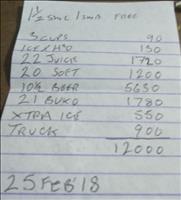 1½ SML / SMB FREE
3 CUPS 90
ICE/H²O 130
22 JUICE 1720
20 SOFT 1200
10½ BEER 5630
21 BUKO 1780
XTRA ICE 550
TRUCK 900
12000
25 FEB 18